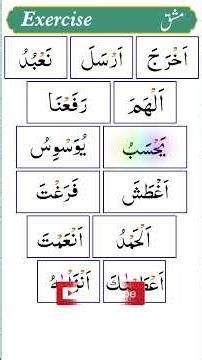 Exercise مشق
اَخْرَجَ اَرْسَلَ نَعْبُدُ
اَلْهَمَ رَفَعْنَا
يَحْسَبُ يُوَسْوِسُ
اَغْطَشَ فَرَغْتَ
اَلْحَمْدُ اَنْعَمْتَ